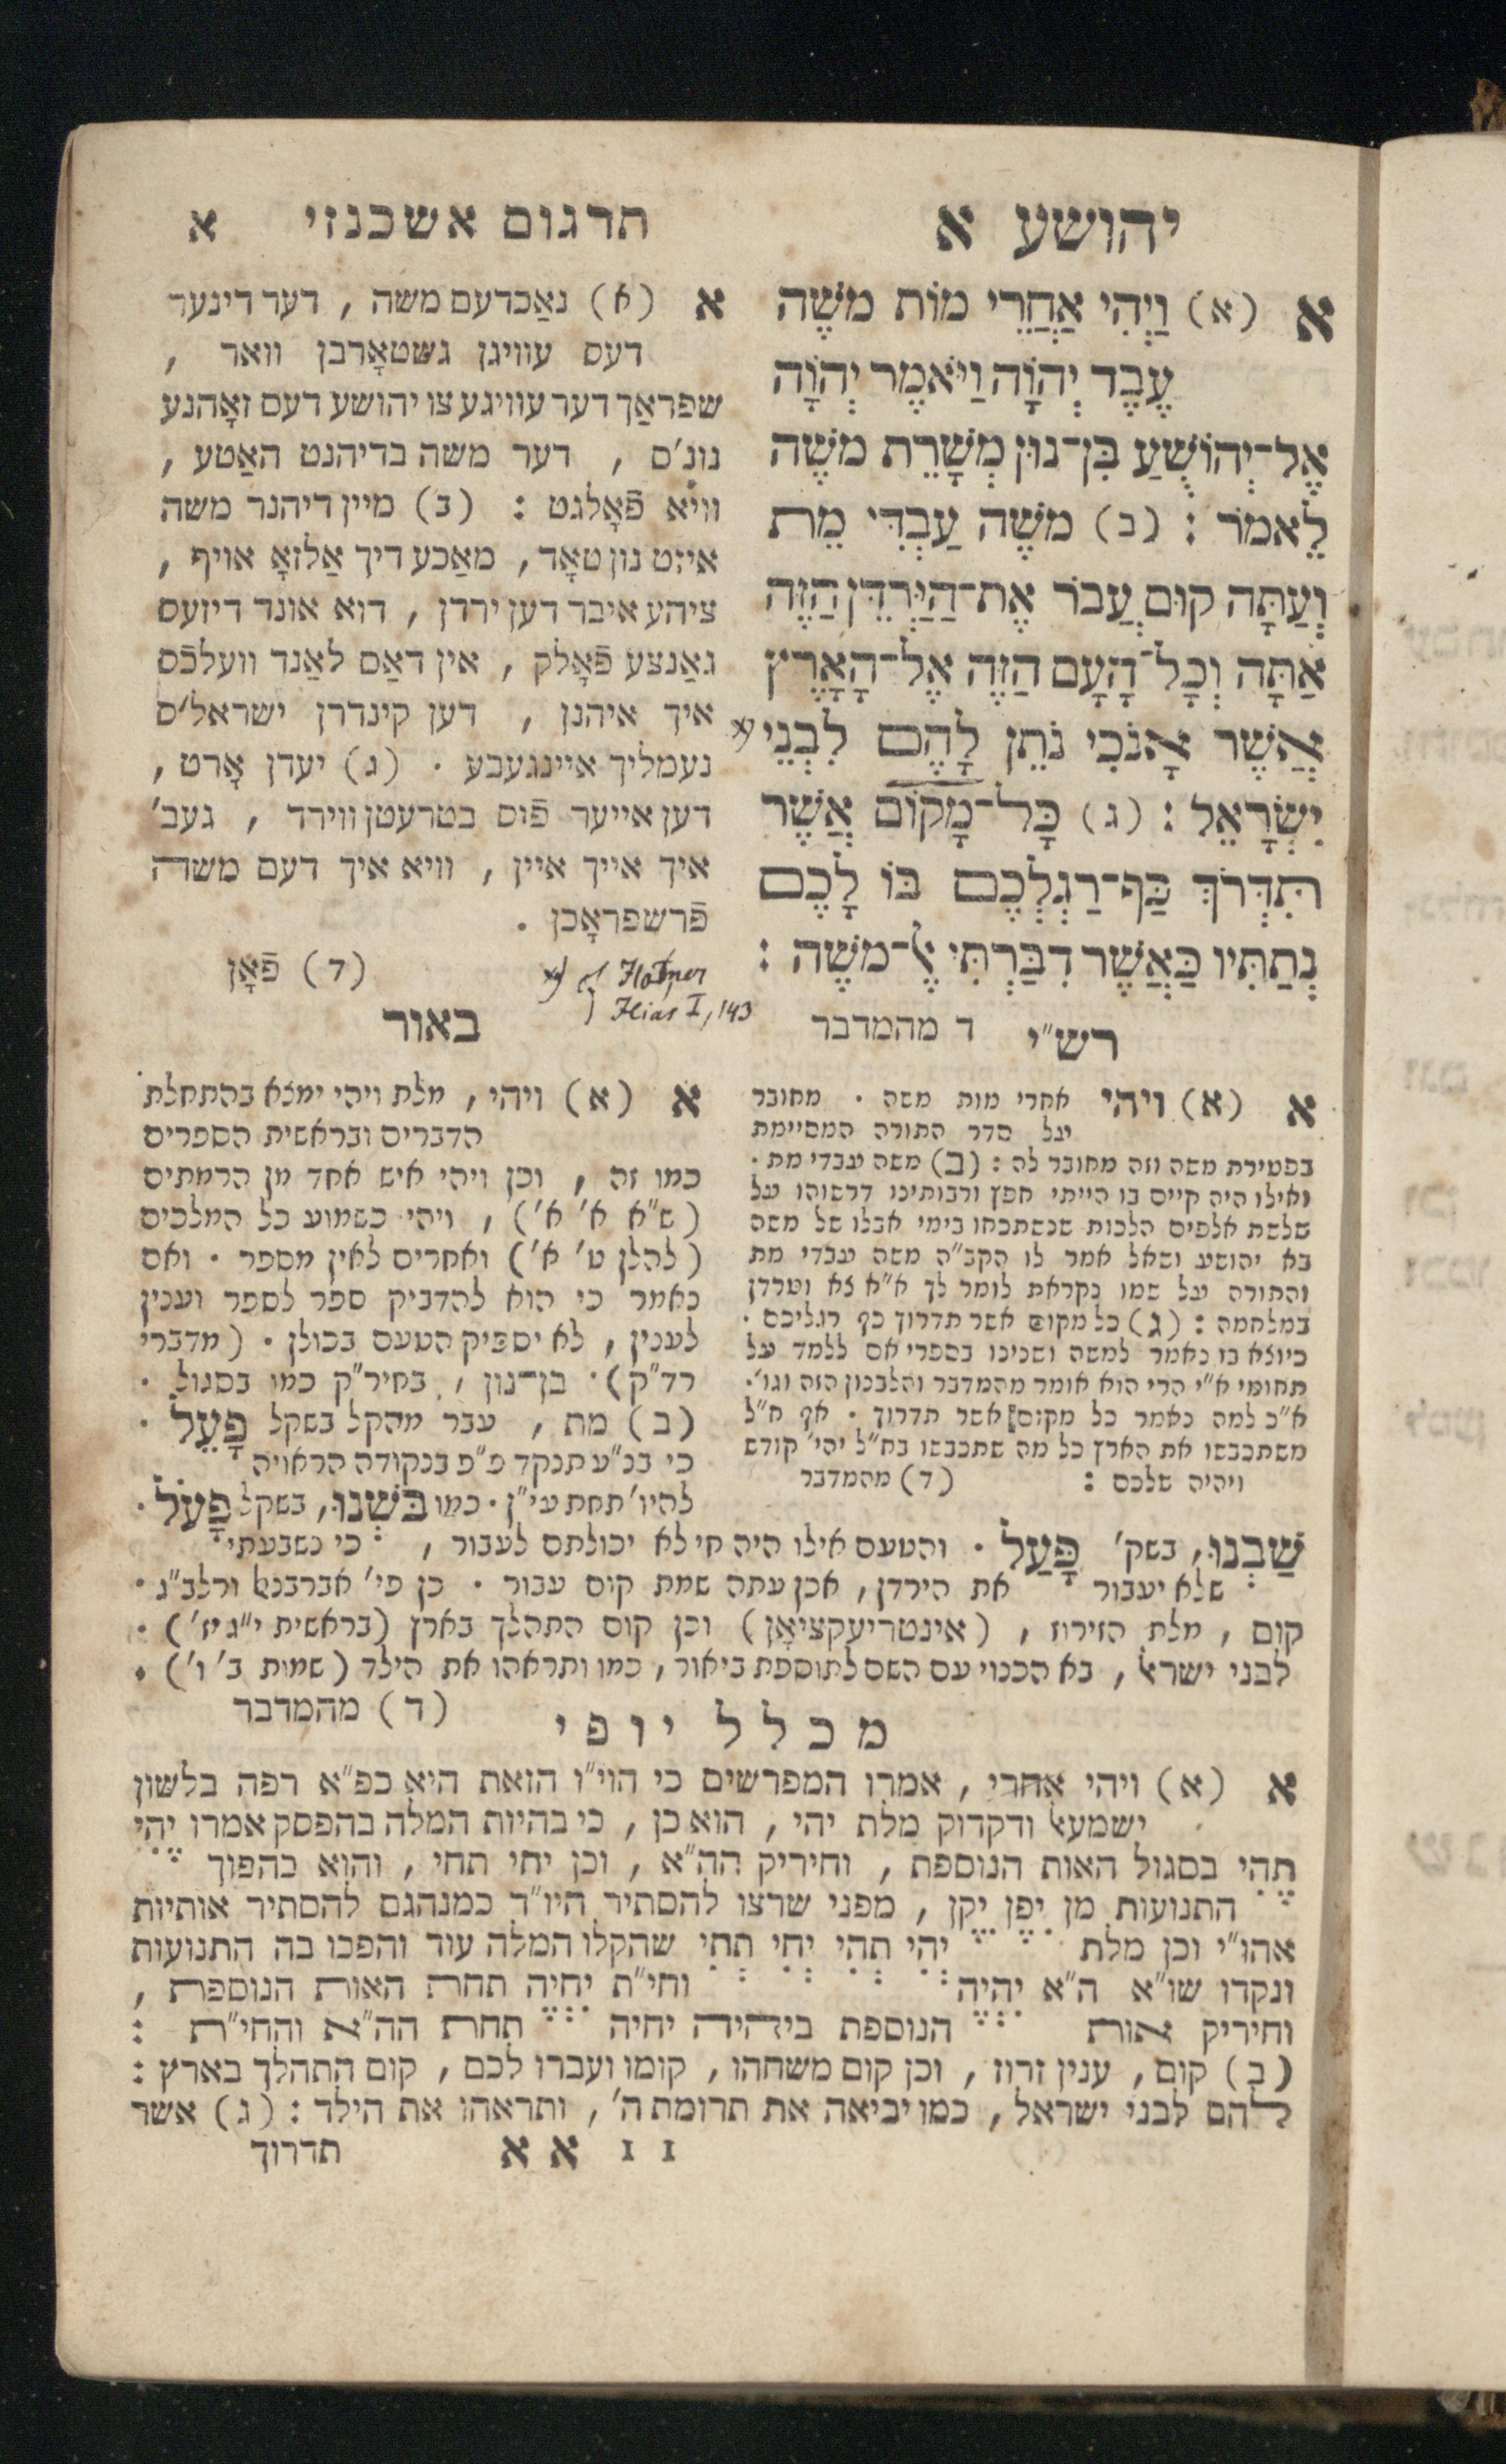 יהושע א
א (א) וַיְהִי אַחֲרֵי מוֹת משֶׁה
עֶבֶד יְהוָֹה וַיֹּאמֶר יְהוָֹה
אֶל־יְהוֹשֻׁעַ בִּן־נוּן מְשָׁרֵת משֶׁה
לֵאמֹר : (ב) משֶׁה עַבְדִּי מֵת
וְעַתָּה קוּם עֲבֹר אֶת־הַיַּרְדֵּן הַזֶּה
אַתָּה וְכָל־הָעָם הַזֶּה אֶל־הָאָרֶץ
אֲשֶׁר אָנֹכִי נֹתֵן לָהֶם לִבְנֵי
יִשְׂרָאֵל : (ג) כָּל־מָקוֹם אֲשֶׁר
תִּדְרֹךְ כַּף־רַגְלְכֶם בּוֹ לָכֶם
נְתַתִּיו כַּאֲשֶׁר דִּבַּרְתִּי אֶל־משֶׁה :
ד מהמדבר
תרגום אשכנזי א
א (א) נאַכדעם משה , דער דינער
דעס עוויגן געשטאָרבן וואר ,
שפראַך דער עוויגע צו יהושע דעם זאָהנע
נונ'ס , דער משה בדיהנט האַטע ,
וויא פֿאָלגט : (ב) מיין דיהנר משה
איזט נון טאָד , מאַכע דיך אַלזאָ אויף ,
ציהע איבר דען ירדן , דוא אונד דיזעס
גאַנצע פֿאָלק , אין דאַס לאַנד וועלכֿס
איך איהנן , דען קינדרן ישראל'ס
נעמליך איינגעבע . (ג) יעדן אָרט ,
דען אייער פֿוס בטרעטן ווירד , געב'
איך אייך איין , וויא איך דעם משה
פֿרשפראָכן .
(ד) פֿאָן
x) cf Homer
Ilias I, 143
רש"י
א (א) ויהי אחרי מות משה . מחובר
על סדר התורה המסיימת
בפטירת משה וזה מחובר לה : (ב) משה עבדי מת .
ואילו היה קיים בו הייתי חפץ ורבותינו דרשוהו על
שלשת אלפים הלכות שנשתכחו בימי אבלו של משה
בא יהושע ושאל אמר לו הקב"ה משה עבדי מת
והתורה על שמו נקראת לומר לך א"א צא וטרדן
במלחמה : (ג) כל מקום אשר תדרוך כף רגליכם .
כיוצא בו נאמר למשה ושנינו בספרי אם ללמד על
תחומי א"י הרי הוא אומר מהמדבר והלבנון הזה וגו'.
א"כ למה נאמר כל מקום אשר תדרוך . אף ח"ל
משתכבשו את הארץ כל מה שתכבשו בח"ל יהי' קודש
ויהיה שלכם : (ד) מהמדבר
באור
א (א) ויהי , מלת ויהי ימצא בהתחלת
הדברים ובראשית הספרים
כמו זה , וכן ויהי איש אחד מן הרמתים
(ש"א א' א') , ויהי כשמוע כל המלכים
(להלן ט' א') ואחרים לאין מספר . ואם
נאמר כי הוא להדביק ספר לספר וענין
לענין , לא יספיק הטעם בכולן . (מדברי
רד"ק) . בן־נון , בחיר"ק כמו בסגול .
(ב) מת , עבר מהקל בשקל פָּעֵל .
כי בנ"ע תנקד פ"פ בנקודה הראויה
להיו' תחת עי"ן . כמו בֹּשְׁנוּ , בשקל פָּעֹל .
שַׁבְנוּ , בשק' פָּעַל . והטעם אילו היה חי לא יכולתם לעבור , כי נשבעתי
שלא יעבור את הירדן , אכן עתה שמת קום עבור . כן פי' אברבנאל ורלב"ג .
קום , מלת הזירוז , (אינטריעקציאָן) וכן קום התהלך בארץ (בראשית י"ג יז') .
לבני ישראל , בא הכנוי עם השם לתוספת ביאור , כמו ותראהו את הילד (שמות ב' ו') .
(ד) מהמדבר
מכלל יופי
א (א) ויהי אחרי , אמרו המפרשים כי הוי"ו הזאת היא כפ"א רפה בלשון
ישמעאל ודקדוק מלת יהי , הוא כן , כי בהיות המלה בהפסק אמרו יֶהִי
תֶּהִי בסגול האות הנוספת , וחיריק הה"א , וכן יחי תחי , והוא בהפוך
התנועות מן יִפֶן יִקֶן , מפני שרצו להסתיר היו"ד כמנהגם להסתיר אותיות
אהו"י וכן מלת יְהִי תְהִי יְחִי תְּחִי שהקלו המלה עוד והפכו בה התנועות
ונקדו שו"א ה"א יִהְיֶה וחי"ת יִחְיֶה תחת האות הנוספת ,
וחיריק אות הנוספת ביהיה יחיה תחת הה"א והחי"ת :
(ב) קום , ענין זרוז , וכן קום משחהו , קומו ועברו לכם , קום התהלך בארץ :
להם לבני ישראל , כמו יביאה את תרומת ה' , ותראהו את הילד : (ג) אשר
תדרוך
II א א